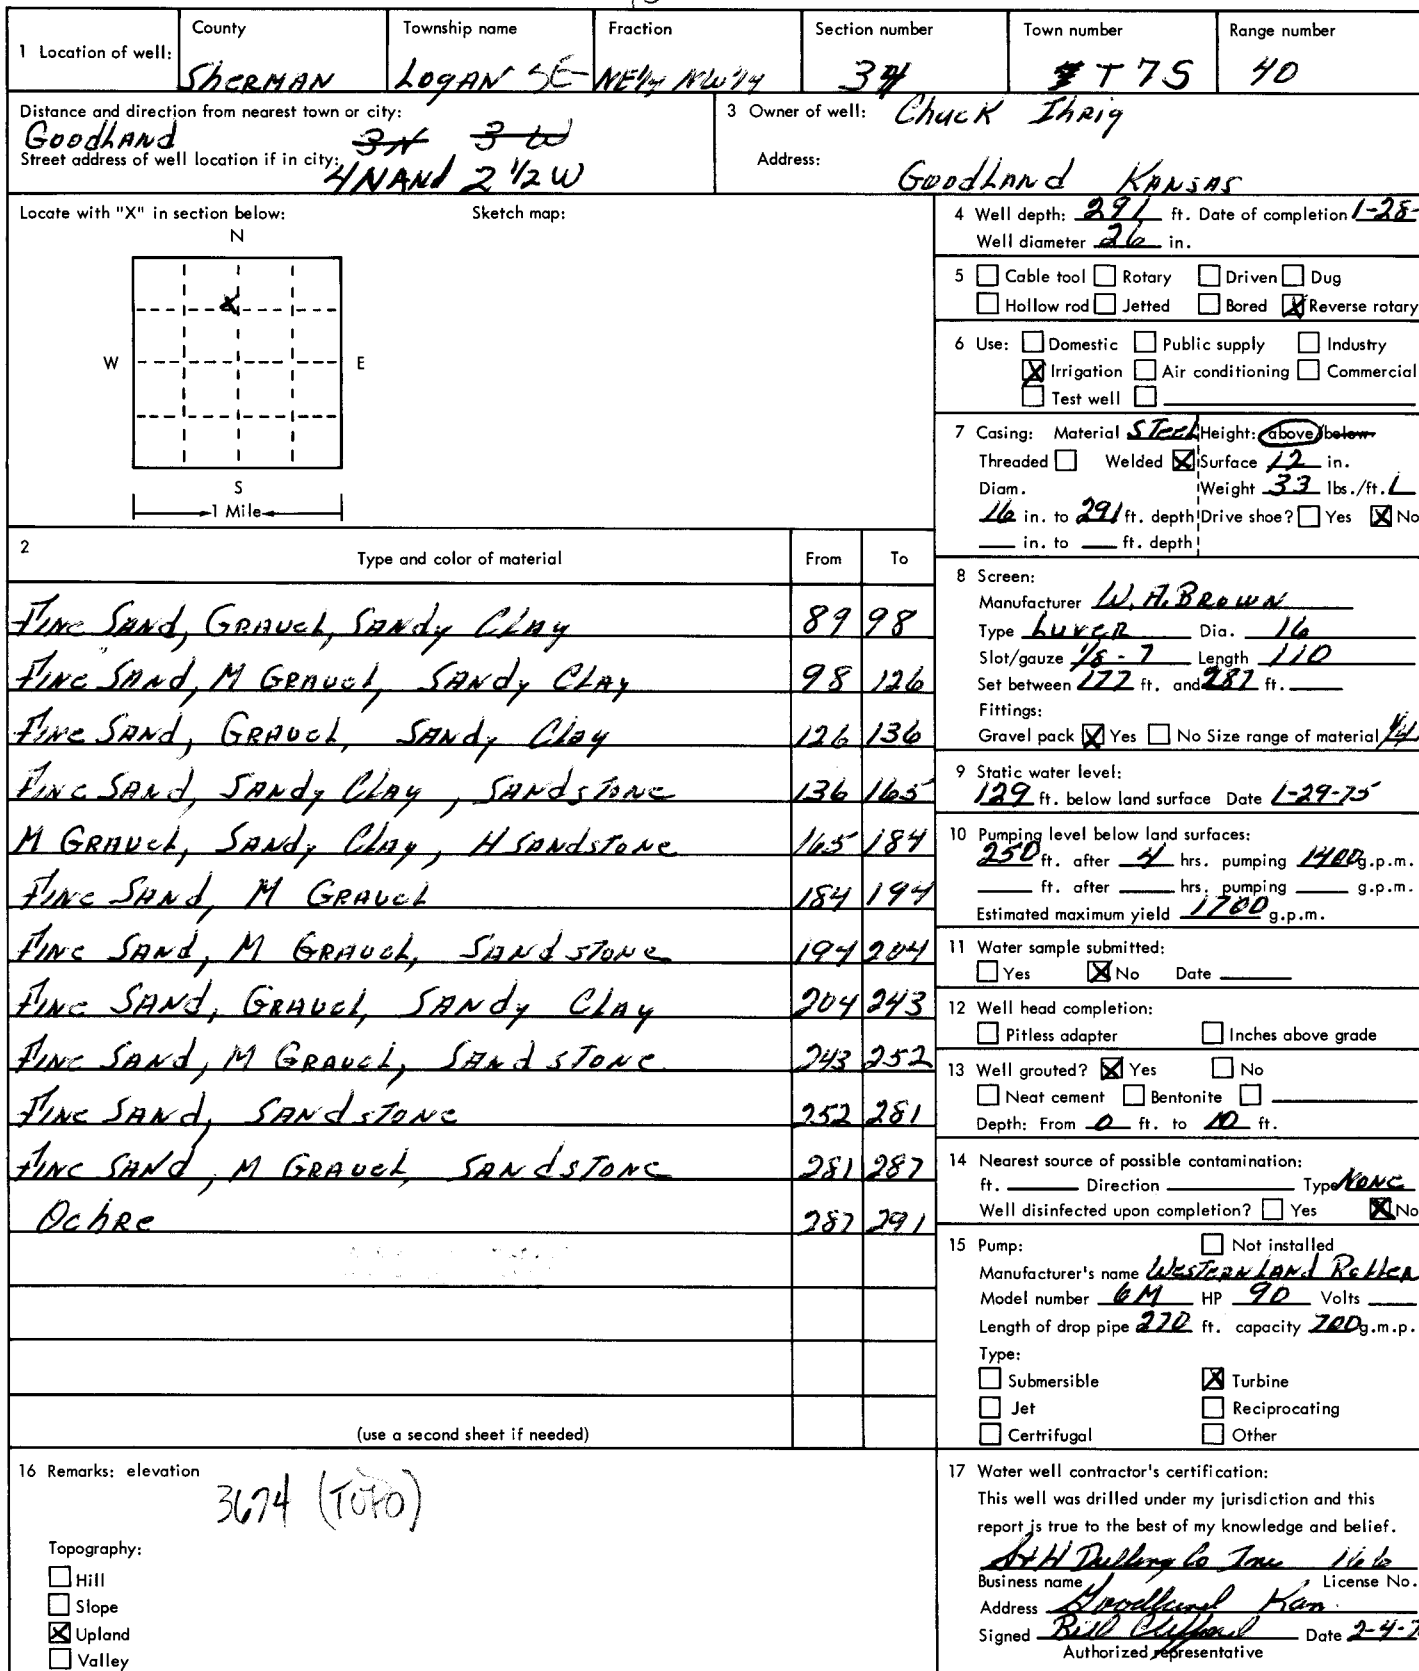 County Township name Fraction Section number Town number Range number
1 Location of well: Sherman Logan SE NE¼ NW¼ 34 T7S 40
Distance and direction from nearest town or city:
Goodland 3N 3W
Street address of well location if in city: 4N and 2 1/2 W
3 Owner of well: Chuck Ihrig
Address: Goodland Kansas
Locate with "X" in section below: Sketch map:
N
X
W E
S
1 Mile
2 Type and color of material From To
Fine Sand, Gravel, Sandy Clay 89 98
Fine Sand, M Gravel, Sandy Clay 98 126
Fine Sand, Gravel, Sandy Clay 126 136
Fine Sand, Sandy Clay, Sandstone 136 165
M Gravel, Sandy Clay, H Sandstone 165 184
Fine Sand, M Gravel 184 194
Fine Sand, M Gravel, Sandstone 194 204
Fine Sand, Gravel, Sandy Clay 204 243
Fine Sand, M Gravel, Sandstone 243 252
Fine Sand, Sandstone 252 281
Fine Sand, M Gravel, Sandstone 281 287
Ochre 287 291
(use a second sheet if needed)
16 Remarks: elevation
3674 (TOPO)
Topography:
Hill
Slope
X Upland
Valley
4 Well depth: 291 ft. Date of completion 1-28-
Well diameter 26 in.
5 Cable tool Rotary Driven Dug
Hollow rod Jetted Bored X Reverse rotary
6 Use: Domestic Public supply Industry
X Irrigation Air conditioning Commercial
Test well
7 Casing: Material Steel Height: above/below
Threaded Welded X Surface 12 in.
Diam. Weight 33 lbs./ft.
16 in. to 291 ft. depth Drive shoe? Yes X No
in. to ft. depth
8 Screen:
Manufacturer W.A. Brown
Type Luver Dia. 16
Slot/gauze 1/8 - 7 Length 110
Set between 177 ft. and 287 ft.
Fittings:
Gravel pack X Yes No Size range of material
9 Static water level:
129 ft. below land surface Date 1-29-75
10 Pumping level below land surfaces:
250 ft. after 4 hrs. pumping 1400 g.p.m.
ft. after hrs. pumping g.p.m.
Estimated maximum yield 1700 g.p.m.
11 Water sample submitted:
Yes X No Date
12 Well head completion:
Pitless adapter Inches above grade
13 Well grouted? X Yes No
Neat cement Bentonite
Depth: From 0 ft. to 10 ft.
14 Nearest source of possible contamination:
ft. Direction Type None
Well disinfected upon completion? Yes X No
15 Pump: Not installed
Manufacturer's name Western Land Roller
Model number 6M HP 90 Volts
Length of drop pipe 270 ft. capacity 700 g.m.p.
Type:
Submersible X Turbine
Jet Reciprocating
Certrifugal Other
17 Water well contractor's certification:
This well was drilled under my jurisdiction and this
report is true to the best of my knowledge and belief.
Drilling Co Inc 166
Business name License No.
Address Goodland Kan.
Signed Bill Clifford Date 2-4-7
Authorized representative